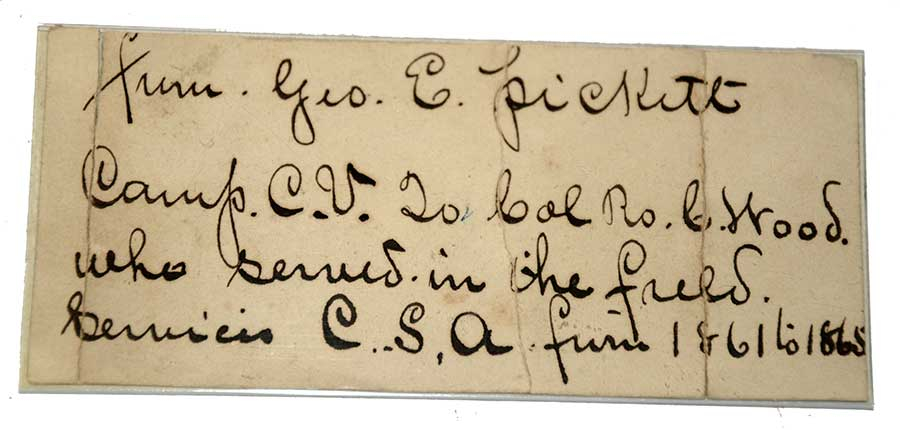 from. Geo. E. Pickett
Camp. C.V. To Col Ro. C. Wood.
who served in the field.
Services C.S.A from 1861 to 1865